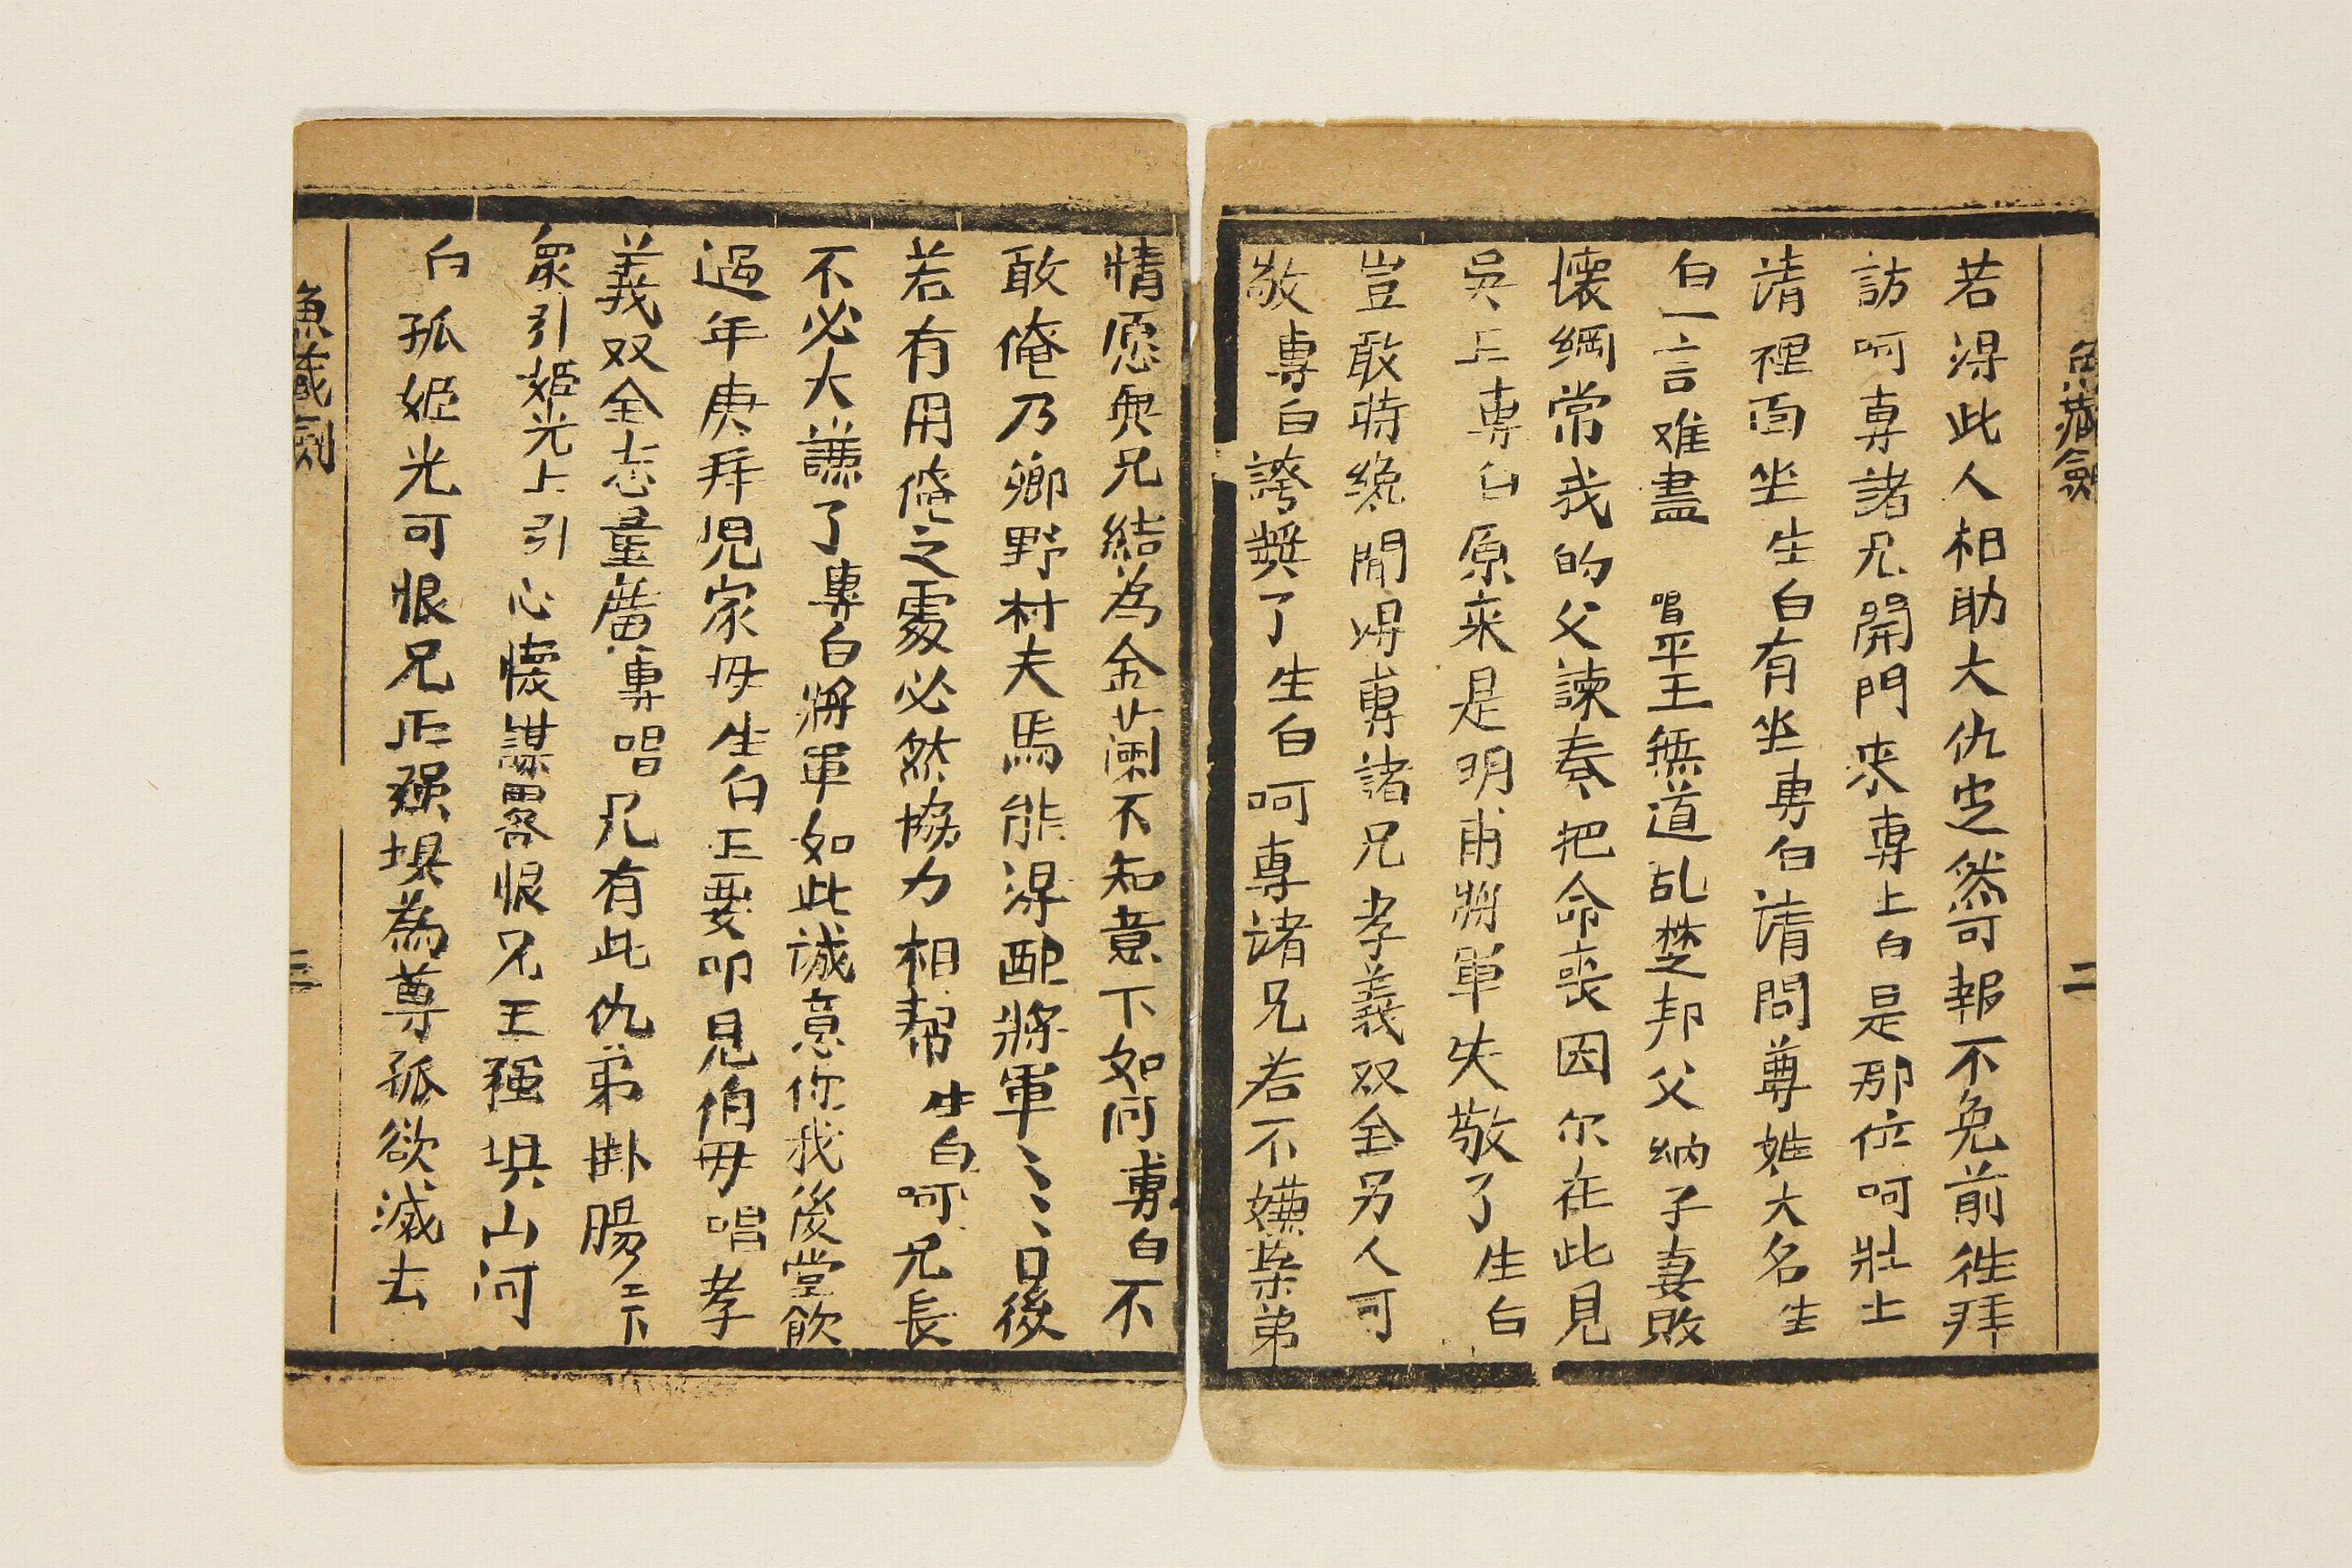 魚藏劍 二
若得此人相助大仇必然可報不免前徃拜
訪呵専諸兄開門来専上白是那位呵壯士
請裡面坐生白有坐専白請問尊姓大名生
白一言难盡 唱平王無道乱楚邦父納子妻敗
懐綱常我的父諫奏把命喪因尔在此見
吳上専白原来是明甫將軍失敬了生白
豈敢時纔聞得専諸兄孝義双全另人可
敬専白誇奬了生白呵専诸兄若不嫌棄弟
情愿與兄結為金蘭不知意下如何専白不
敢俺乃鄉野村夫焉能得配將軍〻〻日後
若有用俺之處必然協力相帮生白呵兄長
不必大謙了専白將軍如此誠意你我後堂飲
過年庚拜児家母生白正要叩見伯母唱孝
義双全志量廣専唱兄有此仇弟掛腸三下
衆引姬光上引心懷謀畧恨兄王强埧山河
白孤姬光可恨兄王强埧為尊孤欲滅去
魚藏劍 三